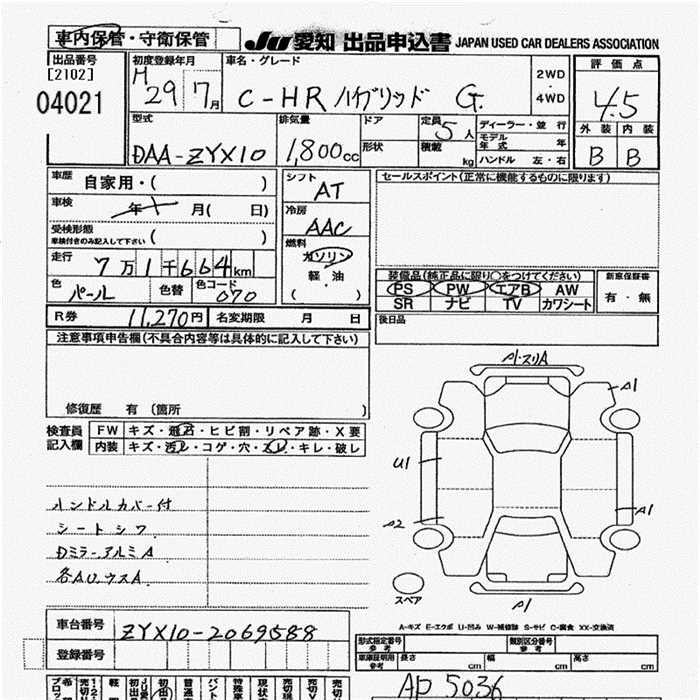 車内保管・守衛保管
JU 愛知 出品申込書 JAPAN USED CAR DEALERS ASSOCIATION
出品番号
[2102]
04021
初度登録年月
H 29 7月
車名・グレード
C-HR ハイブリッド G
2WD
・
4WD
評価点
4.5
外装 内装
B B
型式
DAA-ZYX10
排気量
1,800cc
ドア
形状
定員 5人
積載 kg
ディーラー・並行
モデル年式 年
ハンドル 左・右
車歴 自家用・( )
車検 年 月( 日)
受検形態
車検付きのみ記入して下さい ( )
走行 7万1千664km
色 パール 色替 色コード 070
シフト
AT
冷房
AAC
燃料
ガソリン
軽・油
( )
セールスポイント(正常に機能するものに限ります)
装備品(純正品に限り○をつけてください)
PS PW エアB AW
SR ナビ TV カワシート
新車保証書
有・無
R券 11,270円 名変期限 月 日
後日品
注意事項申告欄(不具合内容等は具体的に記入して下さい)
修復歴 有 (箇所 )
検査員記入欄
FW キズ・飛石・ヒビ割・リペア跡・X要
内装 キズ・汚レ・コゲ・穴・スレ・キレ・破レ
ハンドルカバー付
シートシワ
DミラーアルミA
各AUウスA
P1-スリA
A1
U1
A2
A1
スペア
P1
A-キズ E-エクボ U-凹み W-補修跡 S-サビ C-腐食 XX-交換済
車台番号 ZYX10-2069588
登録番号
形式指定番号
参考
類別区分番号
参考
車庫証明用
参考
長さ cm
幅 cm
高さ cm
AP 5036